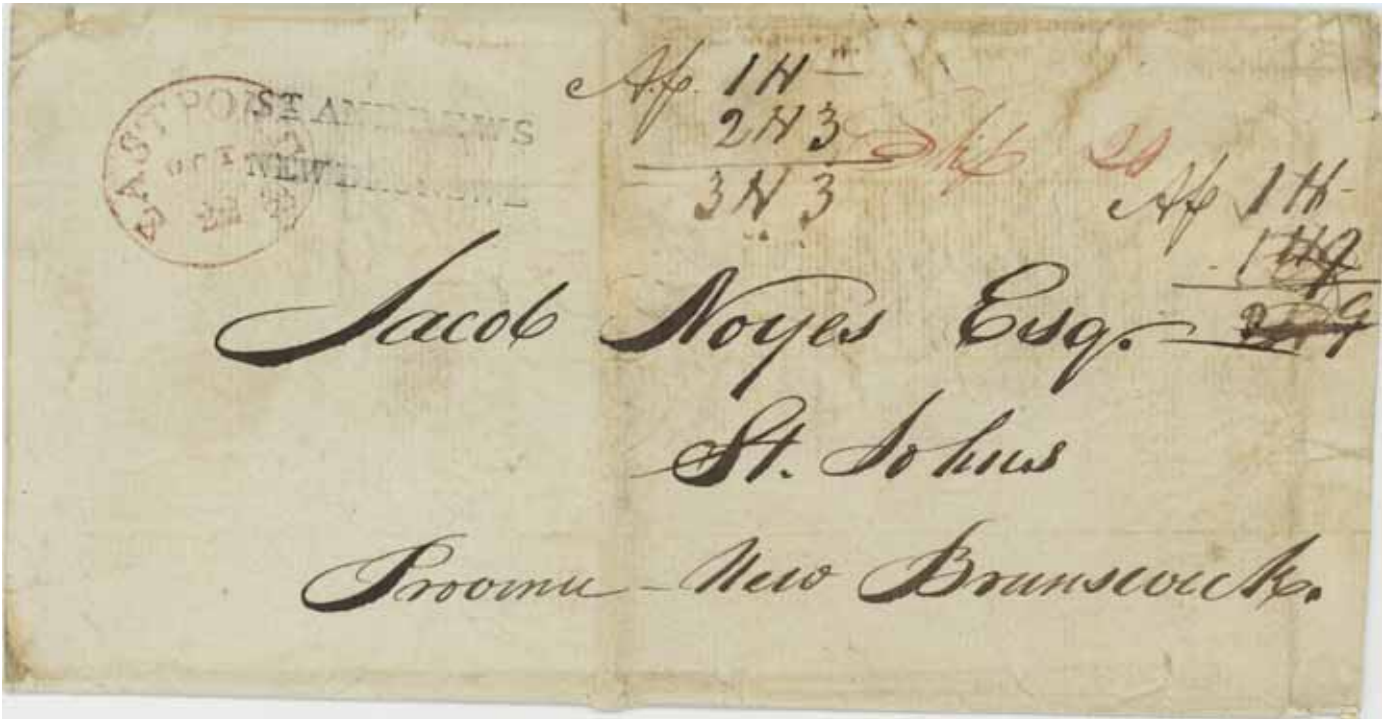 EASTPO
OCT
22
ST ANDREWS
NEW BRUNSWK
1 N
2 N 3
3 N 3
Ship 20
1 N
Jacob Noyes Esq.
St. Johns
Province - New Brunswick.